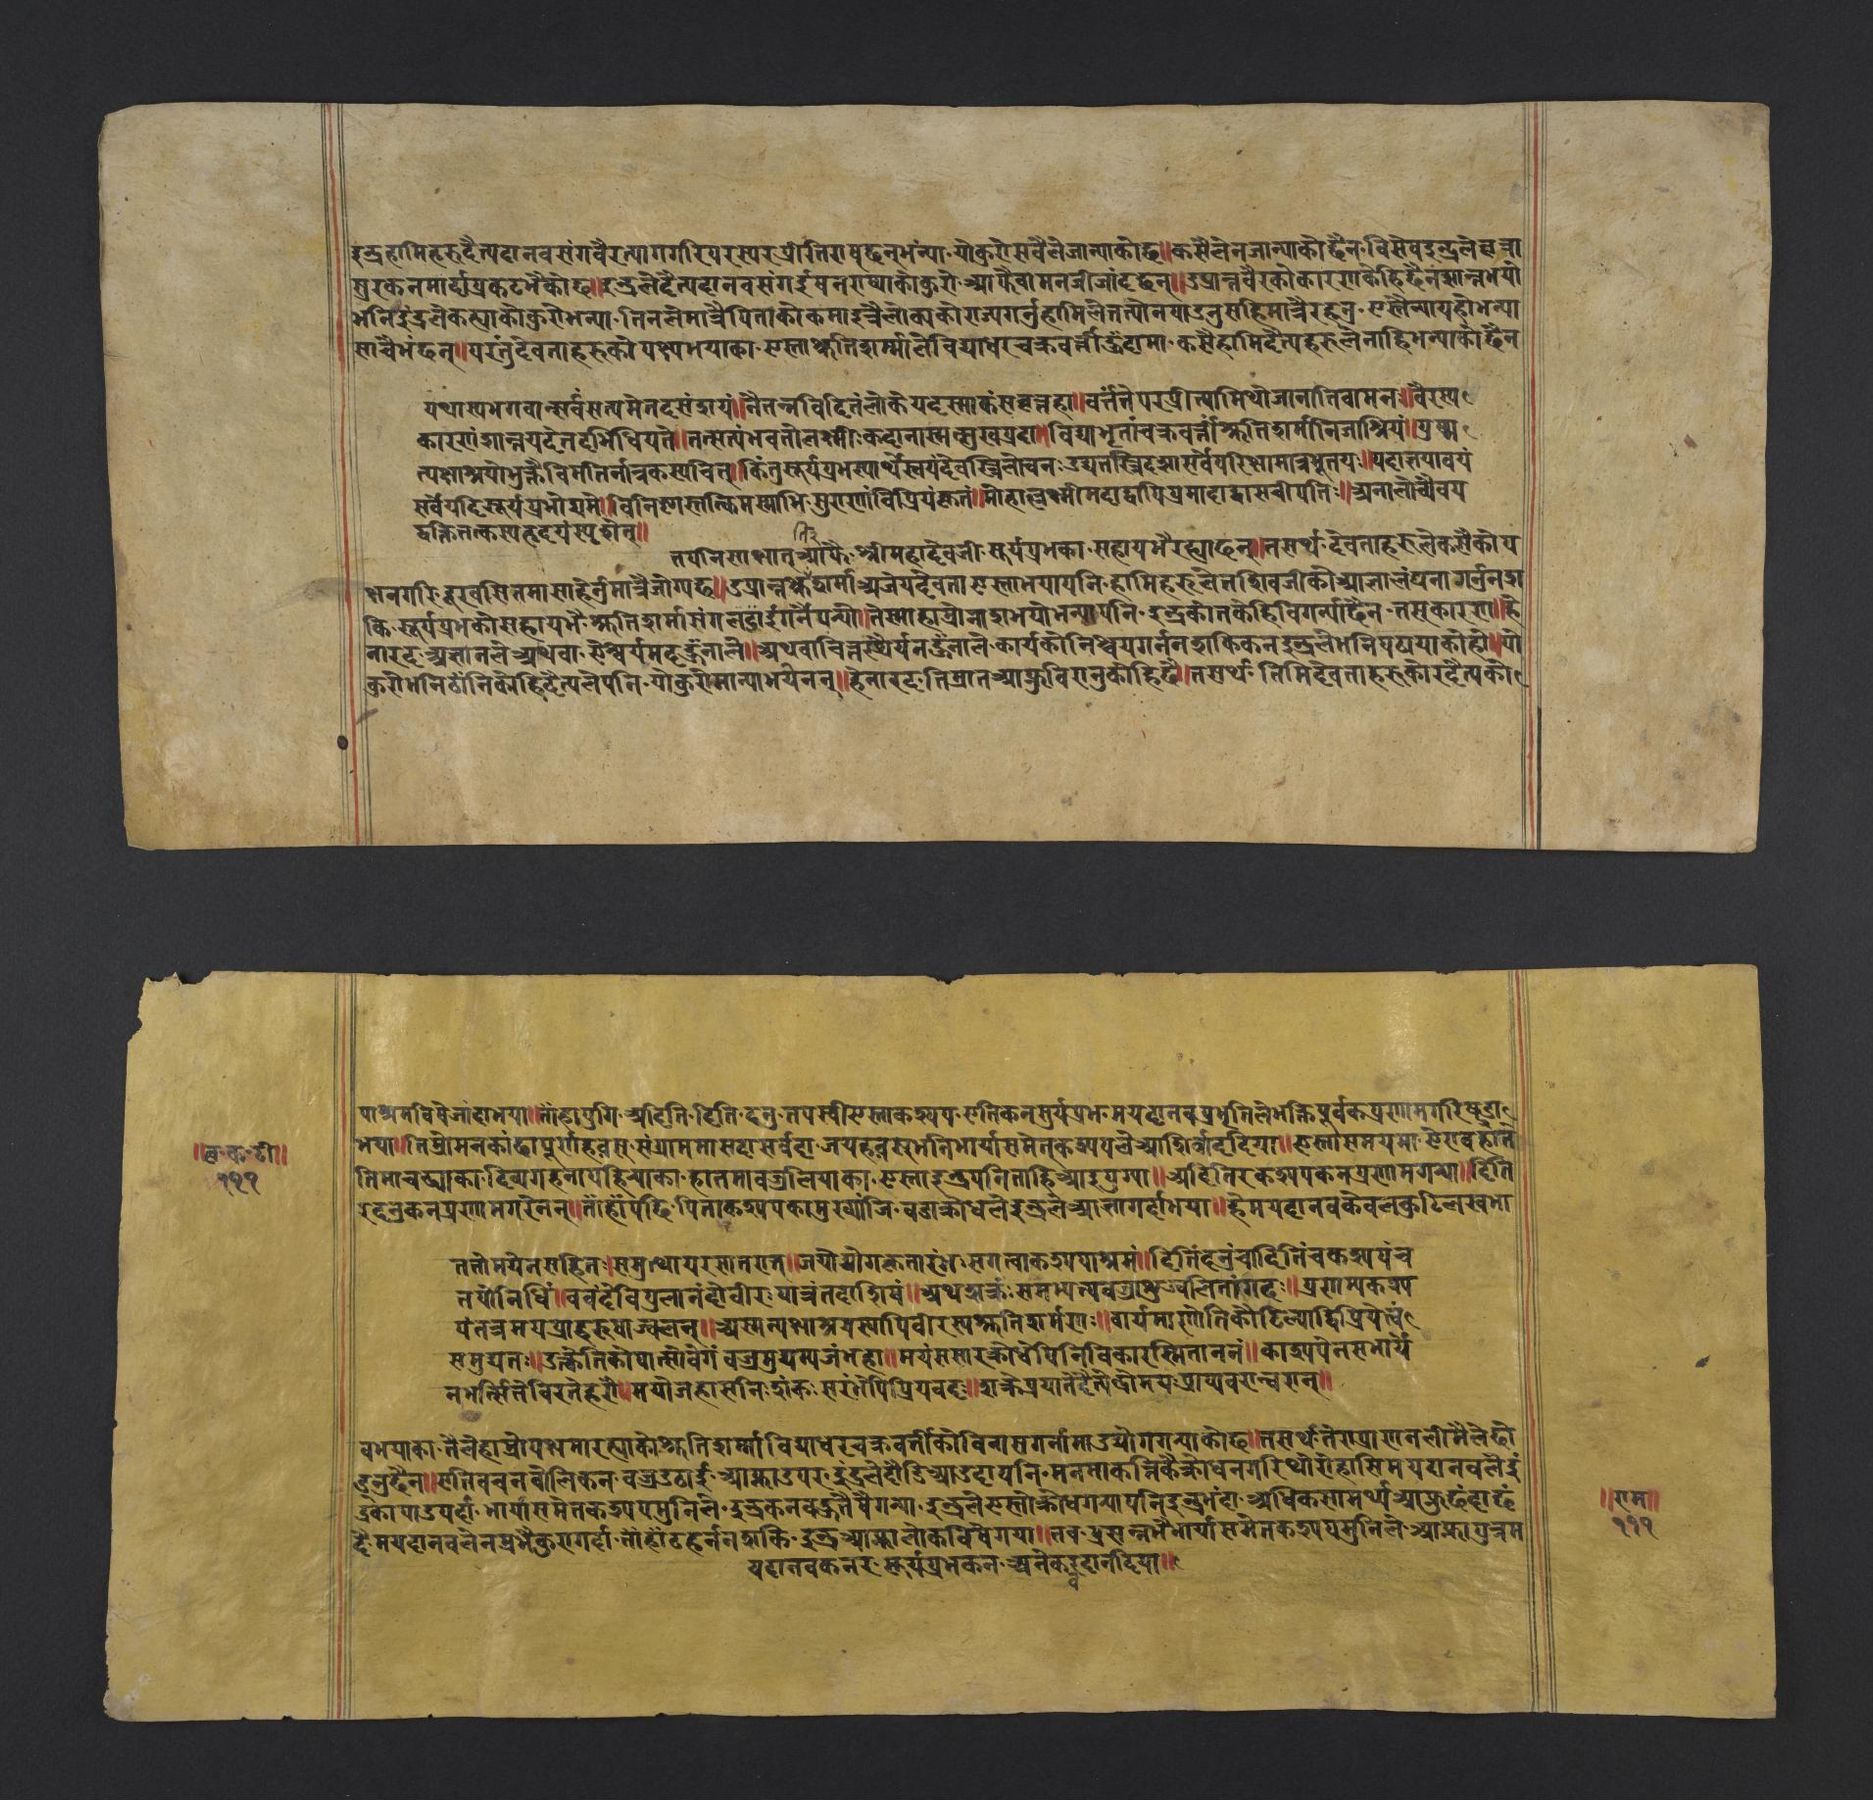 इन्द्रहामिहरुदैत्यदानवसंगवैरत्यागगरिपरस्परप्रीतिराषछनभंन्या योकुरोसवैलेजान्याकोछ॥कसैलेनजान्याकोछैन विसेषइन्द्रलेवृत्रा
सुरकनमार्दाप्रकटभैकोछ॥इन्द्रलेदैत्यदानवसंगईर्षनराष्याकोकुरो आफैवामनजीजांदछन्॥उप्रान्तवैरकोकारणकेहिछैनशान्तभयो
भनिइंद्रलेकह्याकोकुरोभन्या तिनलेमात्रैपिताकोकमाइत्रैलोक्यकोराज्यगर्नुहामिलेतत्पोनयाउनुसहिमात्रैरहनु एस्तैन्यायहोभन्या
साचैभंछन्॥परंतुदेवताहरुकोपक्ष्यभयाका एस्ताश्रुतिशर्मालेविद्याधरचक्रवर्त्तीहुंदामा कसैहामिदैत्यहरुलेनाहिभन्याकोछैन
यथास्यभगवान्सर्वंसत्यमेतदसंशयं॥नैतन्नविदितंलोकेयदस्माकंसवृत्रहा॥वर्त्ततेपरप्रीत्यामिथोजानातिवामनः॥वैरस्य
कारणंशान्तयदेतदभिधियते॥तत्सत्यंभवतोलक्ष्मीःकदानास्मत्सुखप्रदा॥विद्याभृतांचक्रवर्त्तीश्रुतिशर्मानिजाश्रियं॥युष्म
त्पक्षाश्रयोभुङ्क्तेविमतिर्नात्रकस्यचित्॥किंतुसूर्यप्रभस्यार्थेस्वयंदेवस्त्रिलोचनः उद्यतस्त्रिदशासर्वेपरिक्षामात्रभूतयः॥यदाज्ञयावयं
सर्वेयदिसूर्यप्रभोद्यमे॥विनिष्टास्तत्किमस्माभिःसुराणांविप्रियंकृतं॥मोहाल्लक्ष्मीमदाद्वापिप्रमादाद्वासचीपतिः॥अनालोच्यैवय
द्वक्तितत्कस्यहृदयंस्पृशेत्॥
तरपनिसाक्षात्आफै श्रीमहादेवजी सूर्यप्रभका सहायभैरह्याछन्॥तसर्थ देवताहरुलेकसैकोप
क्षनगरि दुरवसितमासाहेर्नुमात्रैजोग्यछ॥उप्रान्तश्रुतिशर्माअजेयदेवताएस्ताभयापनि हामिहरुलेतशिवजीकोआज्ञालंघनागर्नुनश
कि सूर्यप्रभकोसहायभै श्रुतिशर्मासंगलडाईगर्नैपर्‍यो॥तेस्माहाम्रोज्ञाशभयोभन्यापनि इन्द्रकोतकेहिविगर्‍याछैन तसुकारण॥हे
नारद अज्ञानलेअथवा ऐश्वर्यमदहुंनाले॥अथवाचित्तस्थैर्यनहुंनाले कार्यकोनिश्चयगर्ननशकिकनइन्द्रलेभनिपठायाकोहो॥यो
कुरोभनिठांनिकोहिदैत्यलेपनि योकुरोमान्याभयेनन्॥हेनारद तिम्रातआफ्नुविरानुकोहिछै॥तसर्थ तिमिदेवताहरुकोरदैत्यको
पाश्रमविषेजांदाभया॥ताँहापुगि अदिति दिति दनु तपस्वीएस्ताकश्यप एतिकनसुर्यप्रभ मयदानवप्रभृतिलेभक्तिपुर्वकप्रणामगरिषडा
भया॥तिम्रोमनकांछापुर्णाहवस् संग्राममासदासर्वदा जयहवस्भनिभार्यासमेत्कश्यपलेआशिर्वाददिया॥एस्तासमयमा ऐरावतहाति
तिमाचढ्याका दिव्यगहनापहिर्‍याका हातमावज्रलियाका एस्ताइन्द्रपनिताहिआइपुग्या॥अदितिरकश्यपकनप्रणामगर्‍या॥दिति
रदनुकनप्रणामगरेनन्॥ताँहाँपछि पिताकश्यपकामुखाञि वडाक्रोधलेइन्द्रलेआज्ञागर्दाभया॥हेमयदानवकेवलकुटिलस्वभा
॥वृ क टी॥
१११
ततोमयेनसहितः॥समुत्थायरसातरात्॥जयोद्योगकृतारंभःसगत्वाकश्यपाश्रमं॥दितिंदनुंचादितिंचकश्यपंच
तपोनिधिं॥ववंदेविपुलानंदोवीरःपात्रंतदाशिषं॥अथशक्रःसमभ्येत्यवज्रांशुज्वलितांगदः॥प्रणाम्यकश्य
पंतत्रमयंप्राहरुषाज्वलन्॥अस्मत्पक्षाश्रयस्यापिवीरस्यश्रुतिशर्मणः॥वार्यमाणोतिकौटिल्याद्विप्रियेत्वं
समुद्यतः॥उक्त्वेतिकोपात्सावेगंवज्रमुद्यम्यजंभहा॥मयंससारक्रोधेपिनिर्विकारस्मिताननं॥काश्यपेनसभार्ये
नभर्त्सितेविरतेहरौ॥मयोजहासनिःशंकःसरंभेपिप्रियंवदः॥शक्रेप्रयातेदैत्येंद्रोमयःप्राप्यवरान्वरान्॥
वभयाका तैलेहाम्रोपक्षमारह्याकोश्रुतिशर्माविद्याधरचक्रवर्तीकोविनासगर्नामाउद्योगगर्‍याकोछ॥तसर्थ तेराप्राणतलीमैलेछो
डनुछैन॥एतिवचनवोलिकन वज्रउठाई आफ्नाउपर इन्द्रलेदौडिआउदापनि मनमाकत्तिकैक्रोधनगरिथोरोहासि मयदानवलेइं
द्रकापाउपर्दा भार्यासमेतकश्यपमुनिले इन्द्रकनवहुतैषैगर्‍या इन्द्रलेएस्तोक्रोधगर्‍यापनिइन्द्रभंदा अधिकसामर्थ्यआफ्नुछंदाछं
दै मयदानवलेनम्रभैकुरागर्दा ताँहाँटहर्ननशकि इन्द्रआफ्नालोकविषेगया॥तव प्रसन्नभैभार्यासमेतकश्यपमुनिले आफ्नापुत्रम
यदानवकनर सूर्यप्रभकन अनेकवरदानदिया॥
॥राम॥
१११